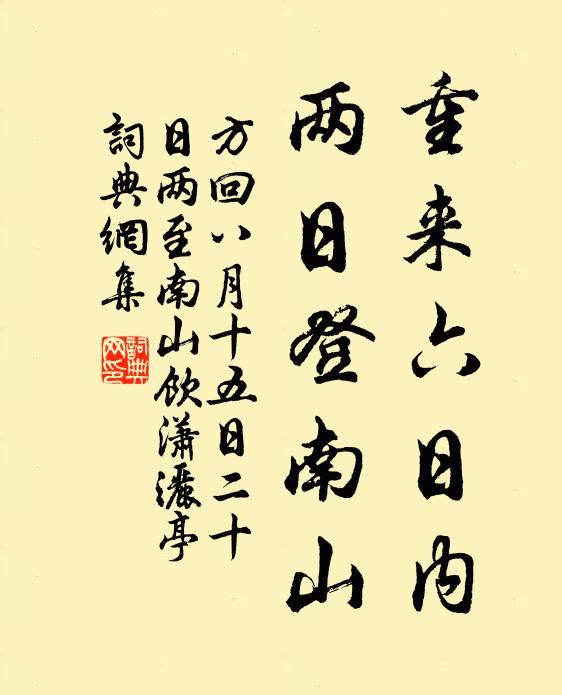 重来六日内
两日登南山
方回八月十五日二十
日两至南山饮潇洒亭
詞典網集
詞典网印